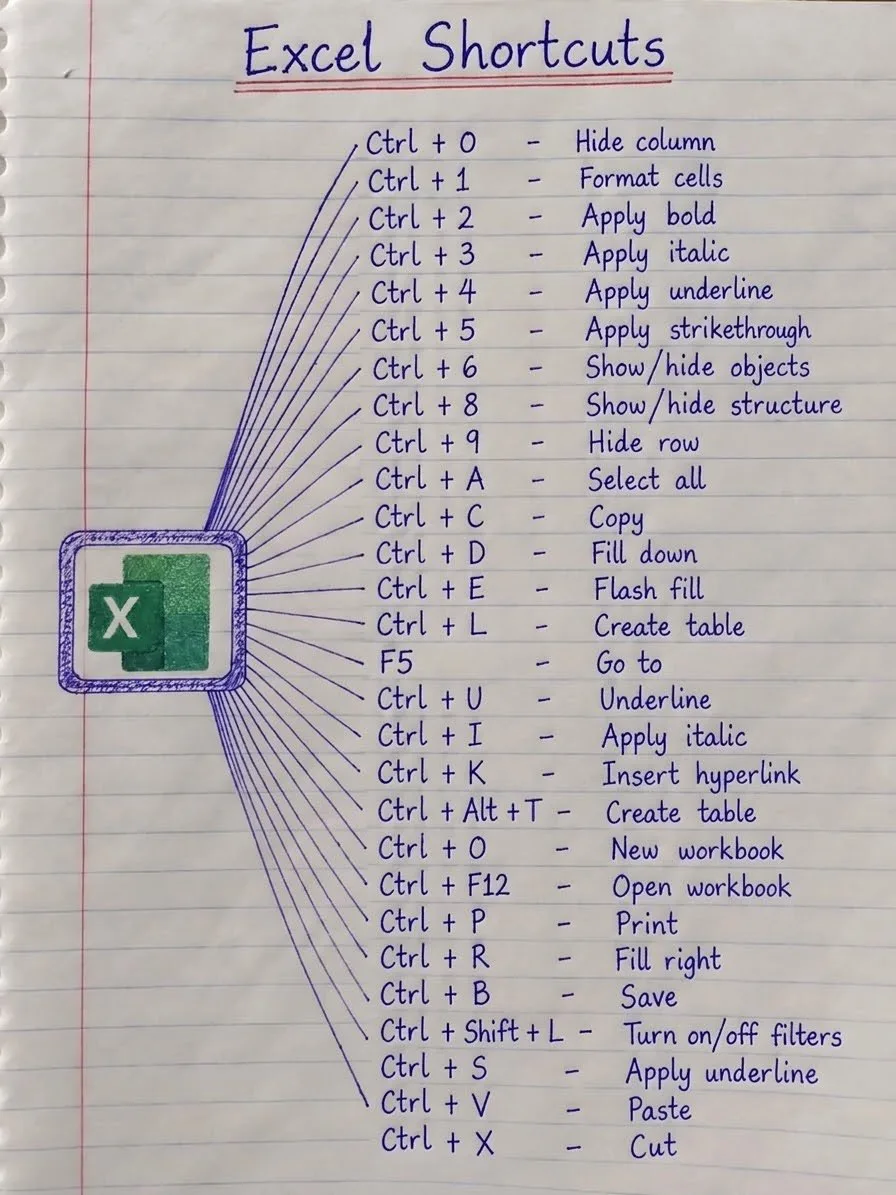 Excel Shortcuts
Ctrl + 0 - Hide column
Ctrl + 1 - Format cells
Ctrl + 2 - Apply bold
Ctrl + 3 - Apply italic
Ctrl + 4 - Apply underline
Ctrl + 5 - Apply strikethrough
Ctrl + 6 - Show/hide objects
Ctrl + 8 - Show/hide structure
Ctrl + 9 - Hide row
Ctrl + A - Select all
Ctrl + C - Copy
Ctrl + D - Fill down
Ctrl + E - Flash fill
Ctrl + L - Create table
X
F5 - Go to
Ctrl + U - Underline
Ctrl + I - Apply italic
Ctrl + K - Insert hyperlink
Ctrl + Alt + T - Create table
Ctrl + O - New workbook
Ctrl + F12 - Open workbook
Ctrl + P - Print
Ctrl + R - Fill right
Ctrl + B - Save
Ctrl + Shift + L - Turn on/off filters
Ctrl + S - Apply underline
Ctrl + V - Paste
Ctrl + X - Cut